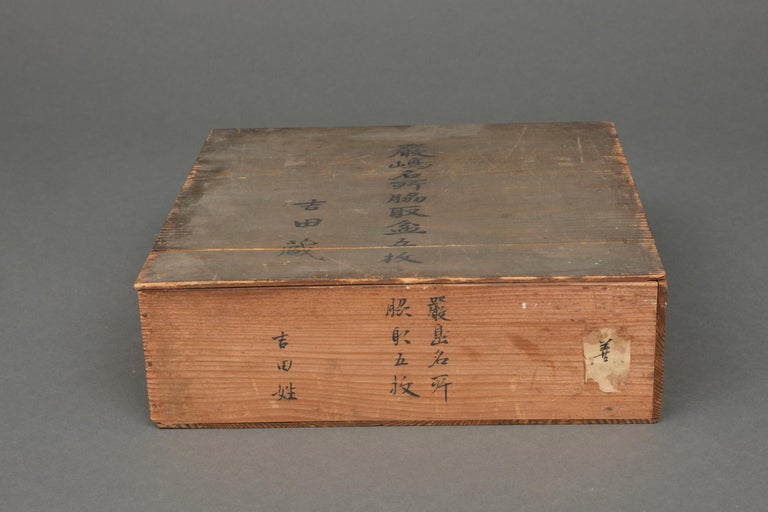 嚴嶋名所脇取盆五枚
吉田蔵
嚴島名所
脇取五枚
吉田姓
善